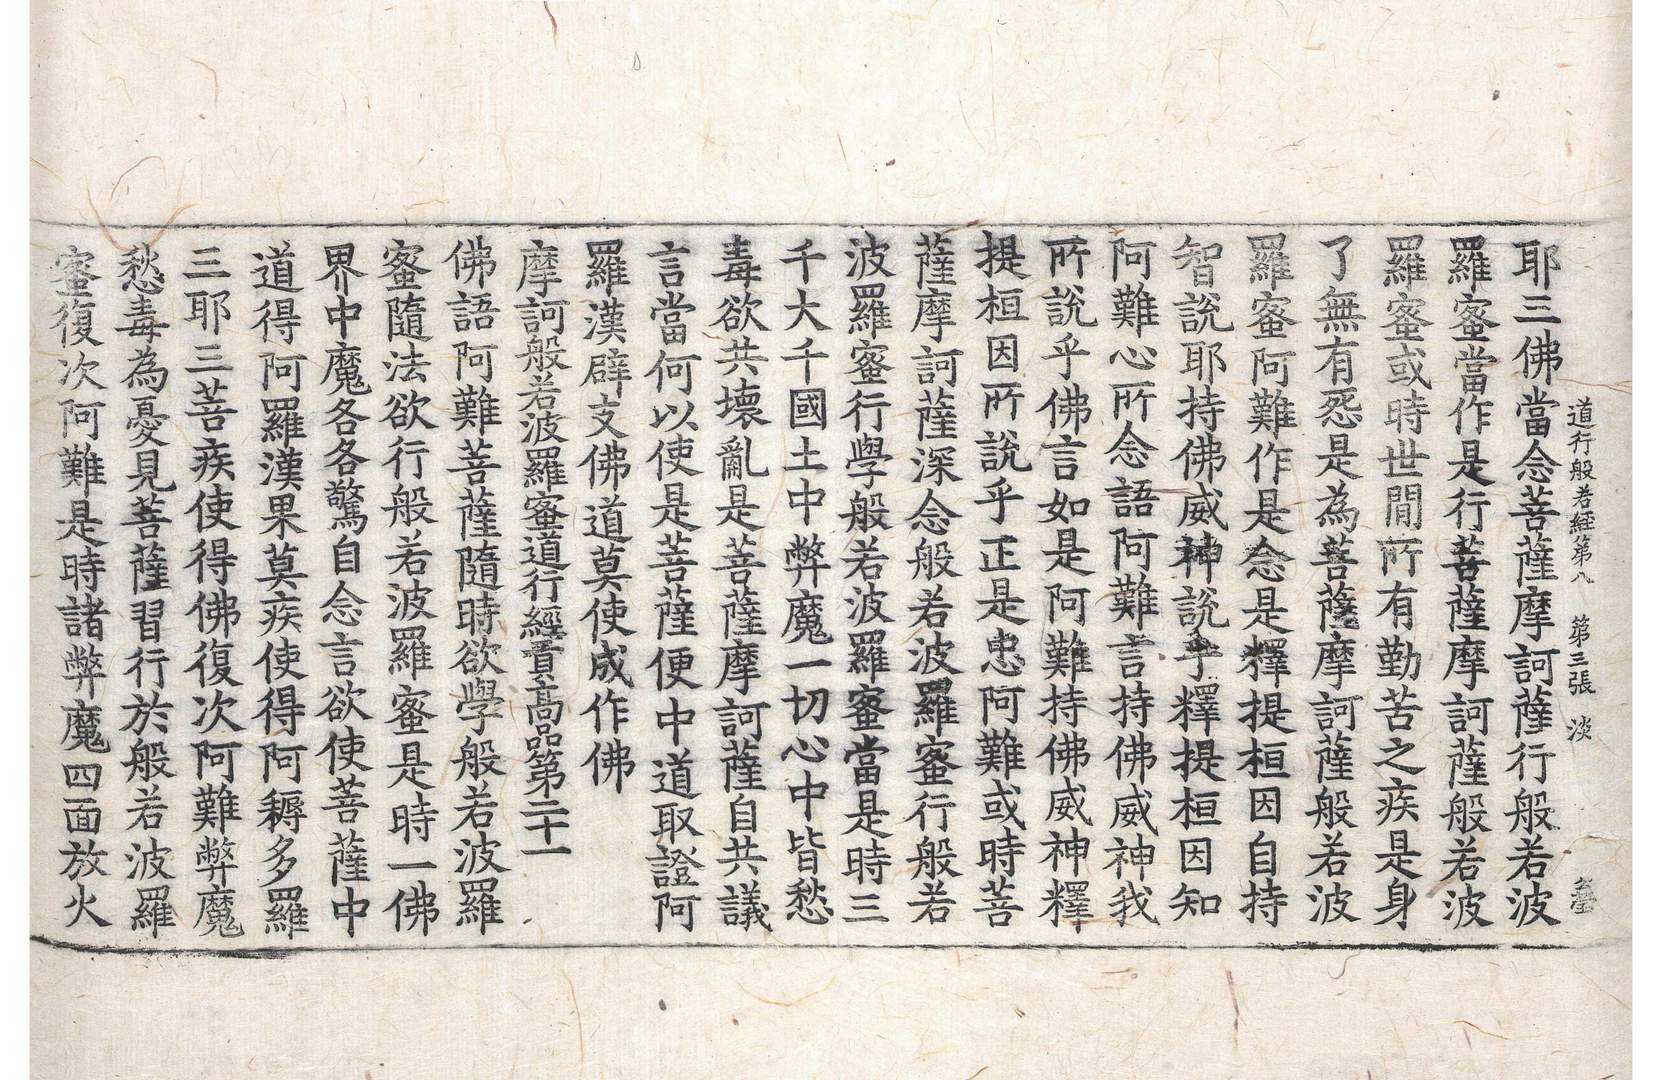 道行般若經第八　第三張　淡
耶三佛當念菩薩摩訶薩行般若波
羅蜜當作是行菩薩摩訶薩般若波
羅蜜或時世間所有勤苦之疾是身
了無有惡是為菩薩摩訶薩般若波
羅蜜阿難作是念是釋提桓因自持
智說耶持佛威神說乎釋提桓因知
阿難心所念語阿難言持佛威神我
所說乎佛言如是阿難持佛威神釋
提桓因所說乎正是忠阿難或時菩
薩摩訶薩深念般若波羅蜜行般若
波羅蜜行學般若波羅蜜當是時三
千大千國土中弊魔一切心中皆愁
毒欲共壞亂是菩薩摩訶薩自共議
言當何以使是菩薩便中道取證阿
羅漢辟支佛道莫使成作佛
摩訶般若波羅蜜道行經貢高品第二十一
佛語阿難菩薩隨時欲學般若波羅
蜜隨法欲行般若波羅蜜是時一佛
界中魔各各驚自念言欲使菩薩中
道得阿羅漢果莫疾使得阿耨多羅
三耶三菩疾使得佛復次阿難弊魔
愁毒為憂見菩薩習行於般若波羅
蜜復次阿難是時諸弊魔四面放火